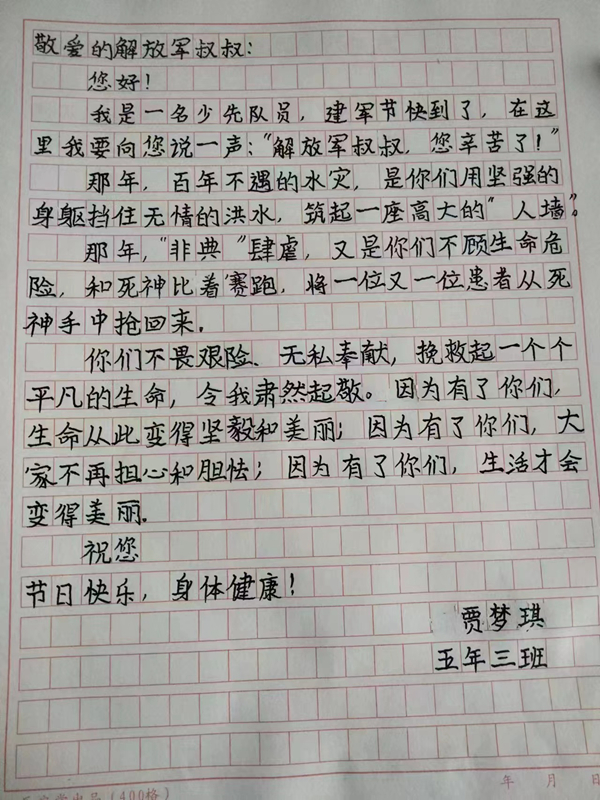 敬爱的解放军叔叔：
您好！
我是一名少先队员，建军节快到了，在这
里我要向您说一声：“解放军叔叔，您辛苦了！”
那年，百年不遇的水灾，是你们用坚强的
身躯挡住无情的洪水，筑起一座高大的“人墙”。
那年，“非典”肆虐，又是你们不顾生命危
险，和死神比着赛跑，将一位又一位患者从死
神手中抢回来。
你们不畏艰险、无私奉献，挽救起一个个
平凡的生命，令我肃然起敬。因为有了你们，
生命从此变得坚毅和美丽；因为有了你们，大
家不再担心和胆怯；因为有了你们，生活才会
变得美丽。
祝您
节日快乐，身体健康！
贾梦琪
五年三班
年 月 日
(400格)